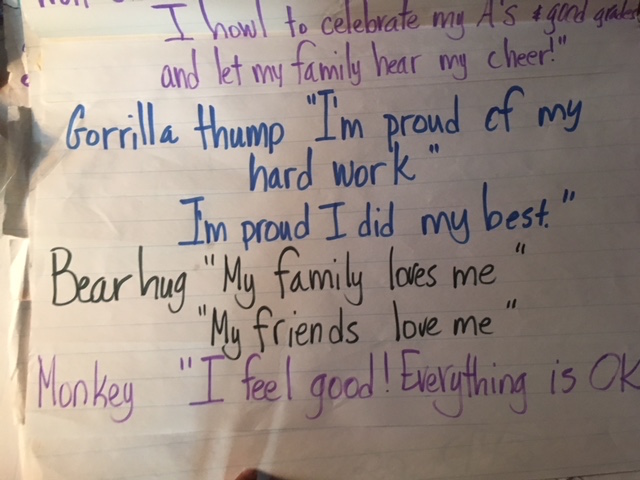 I howl to celebrate my A's & good grades
and let my family hear my cheer!"
Gorrilla thump "I'm proud of my
hard work"
I'm proud I did my best."
Bear hug "My family loves me"
"My friends love me"
Monkey "I feel good! Everything is OK